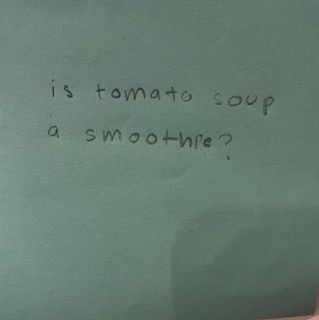 is tomato soup
a smoothie?